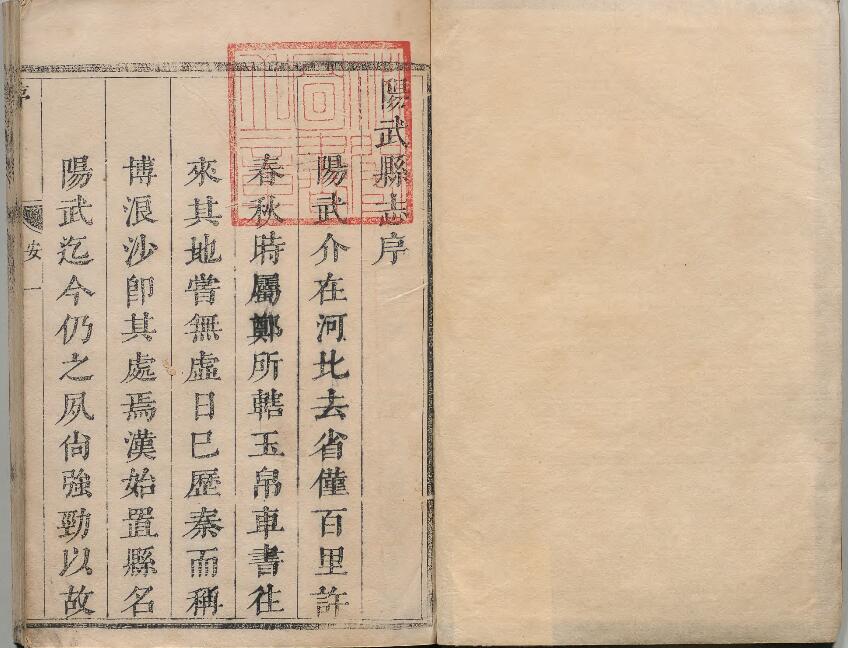 陽武縣志序
陽武介在河北去省僅百里許
春秋時屬鄭所轄玉帛車書往
來其地嘗無虛日已歷秦而稱
博浪沙即其處焉漢始置縣名
陽武迄今仍之夙尚強勁以故
序
安
一